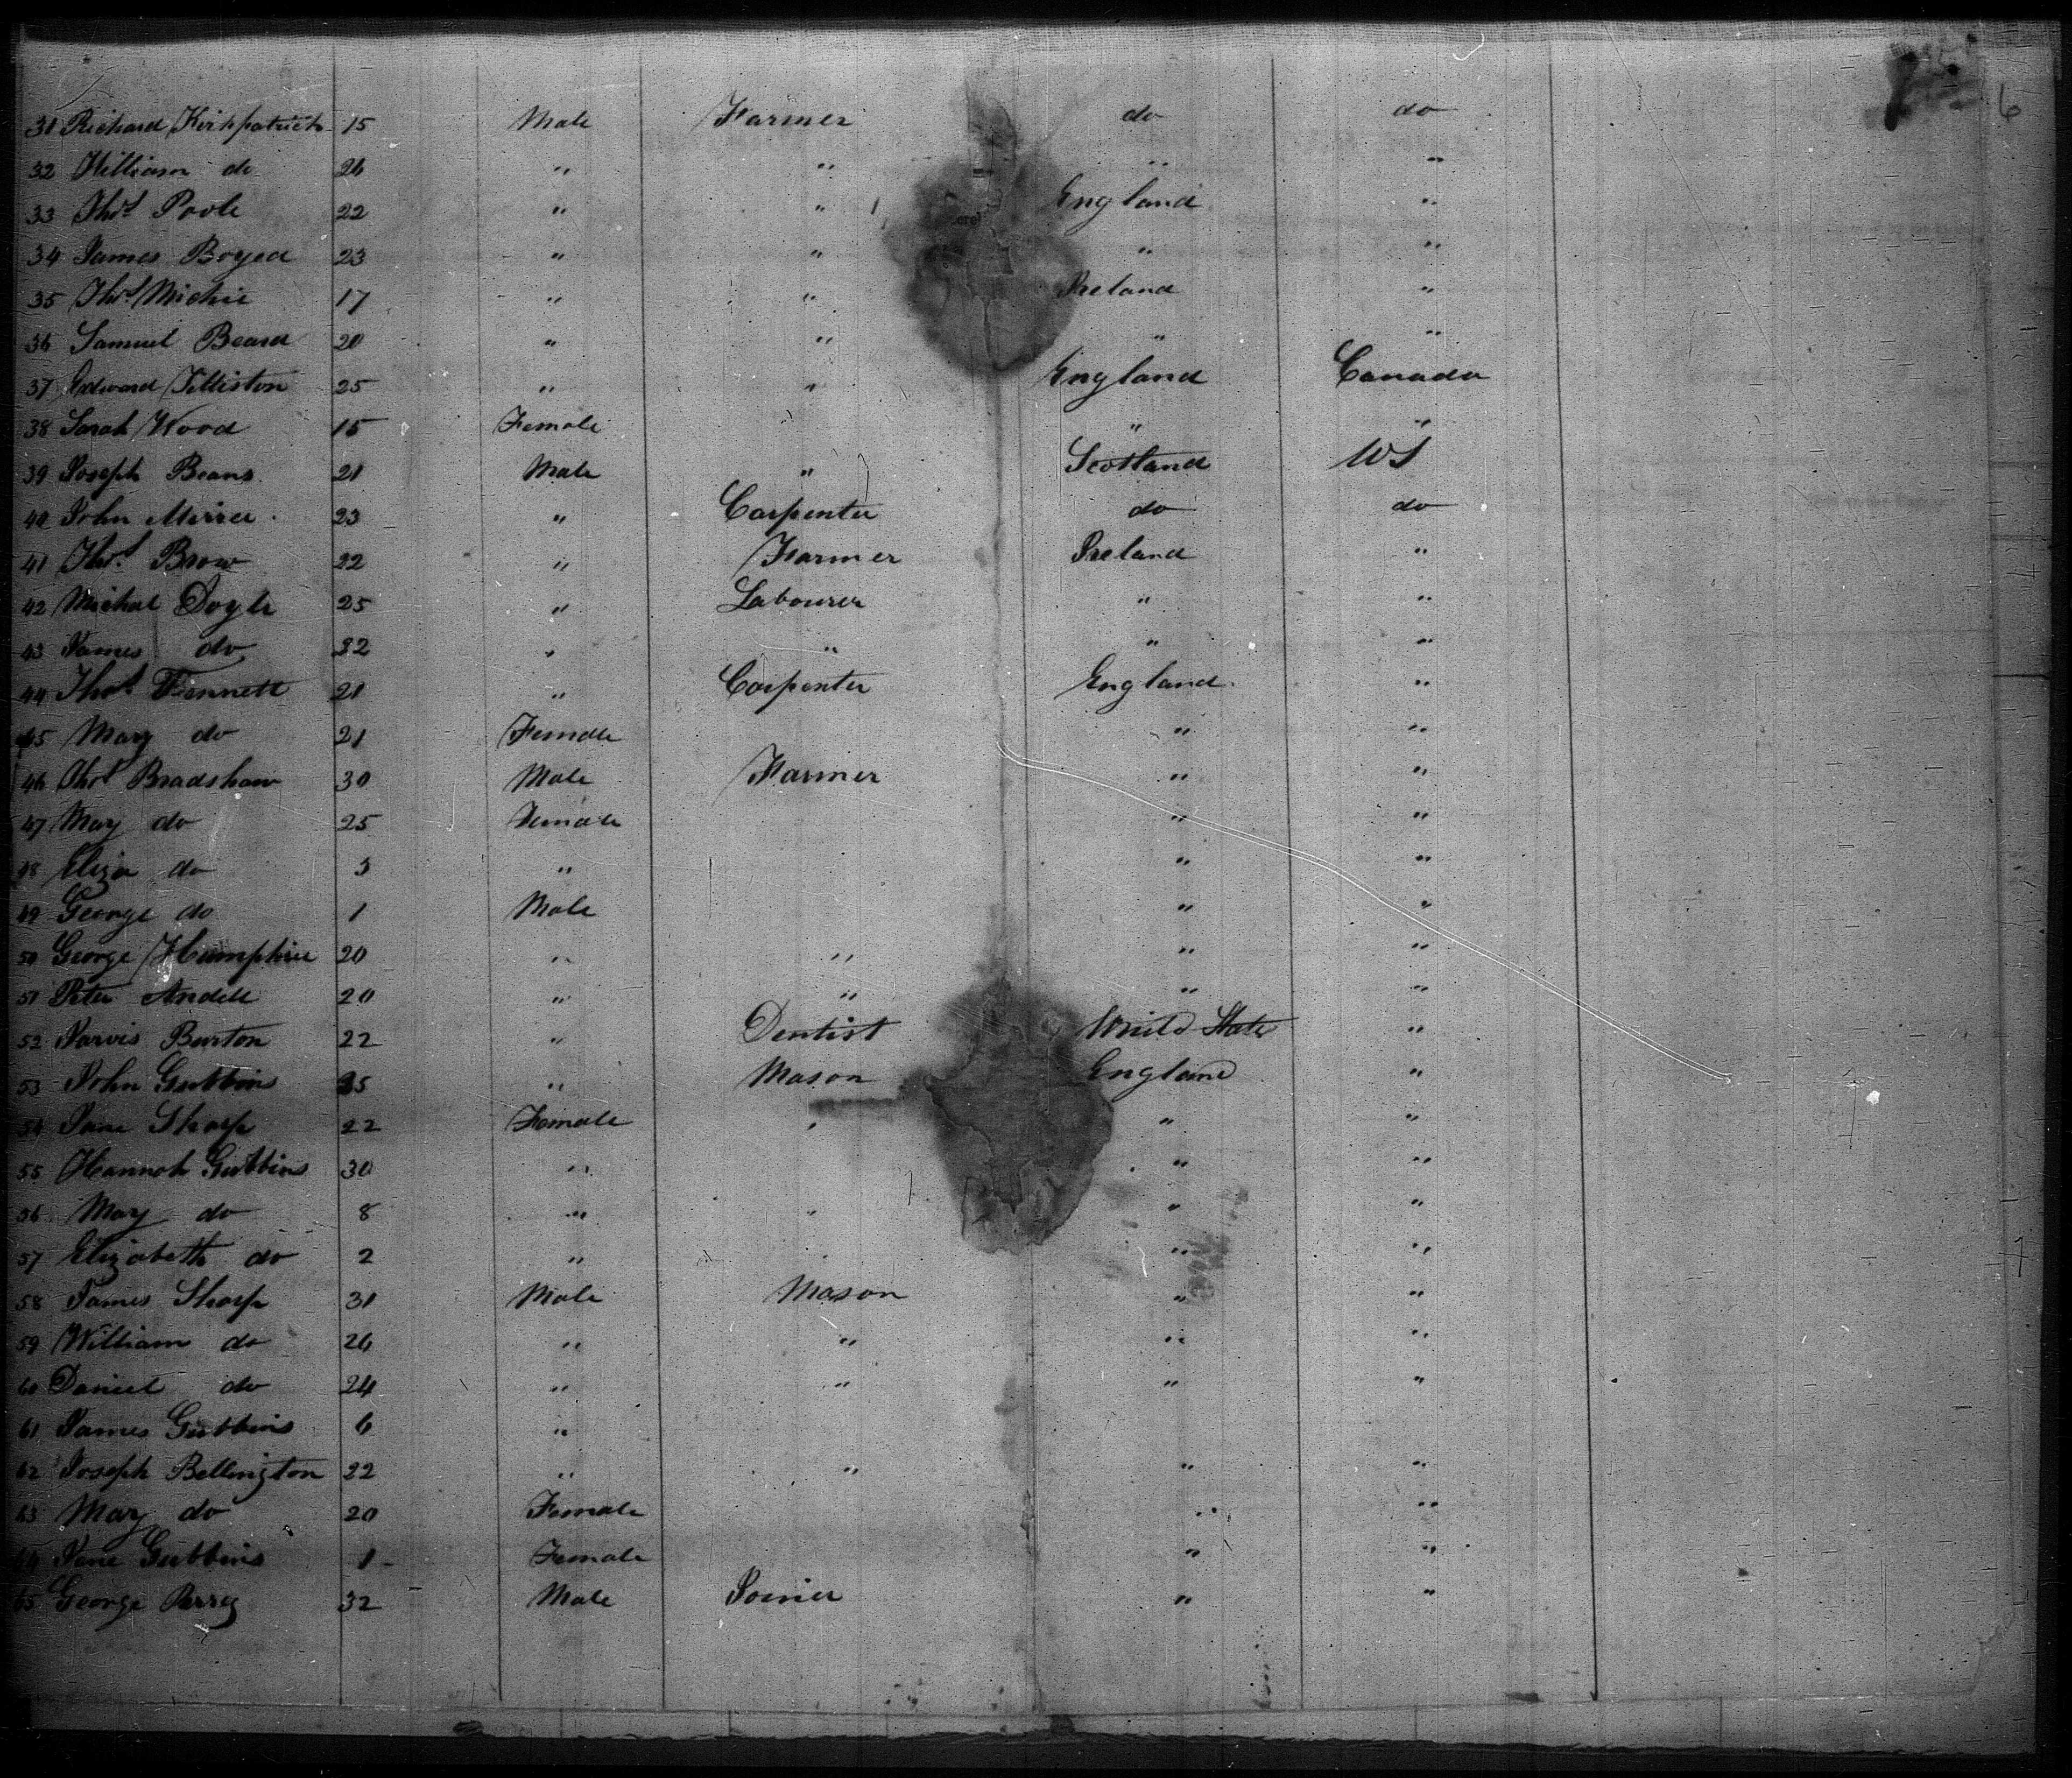 6
31 Richard Kirkpatrick 15 Male Farmer do do
32 William do 26 " " " "
33 Thos Poole 22 " " England "
34 James Boyed 23 " " " "
35 Thos Michie 17 " " Ireland "
36 Samuel Beard 20 " " " "
37 Edward Tilliston 25 " " England Canada
38 Sarah Wood 15 Female " "
39 Joseph Beans 21 Male " Scotland US
40 John Mirrer 23 " Carpenter do do
41 Thos Brow 22 " Farmer Ireland "
42 Michal Doyle 25 " Labourer " "
43 James do 22 " " " "
44 Thos Tennett 21 " Carpenter England "
45 Mary do 21 Female " "
46 Thos Bradshaw 30 Male Farmer " "
47 Mary do 25 Female " "
48 Eliza do 3 " " "
49 George do 1 Male " "
50 George Humphrie 20 " " " "
51 Peter Andell 20 " " " "
52 Jarvis Burton 22 " Dentist United State "
53 John Gubbins 35 " Mason England "
54 Jane Sharp 22 Female " "
55 Hannah Gubbins 30 " " "
56 Mary do 8 " " "
57 Elizabeth do 2 " " "
58 James Sharp 31 Male Mason " "
59 William do 26 " " " "
60 Daniel do 24 " " " "
61 James Gubbins 6 "
62 Joseph Bellington 22 " " " "
63 Mary do 20 Female " "
64 Jane Gubbins 1 Female " "
65 George Perry 32 Male Joiner " "